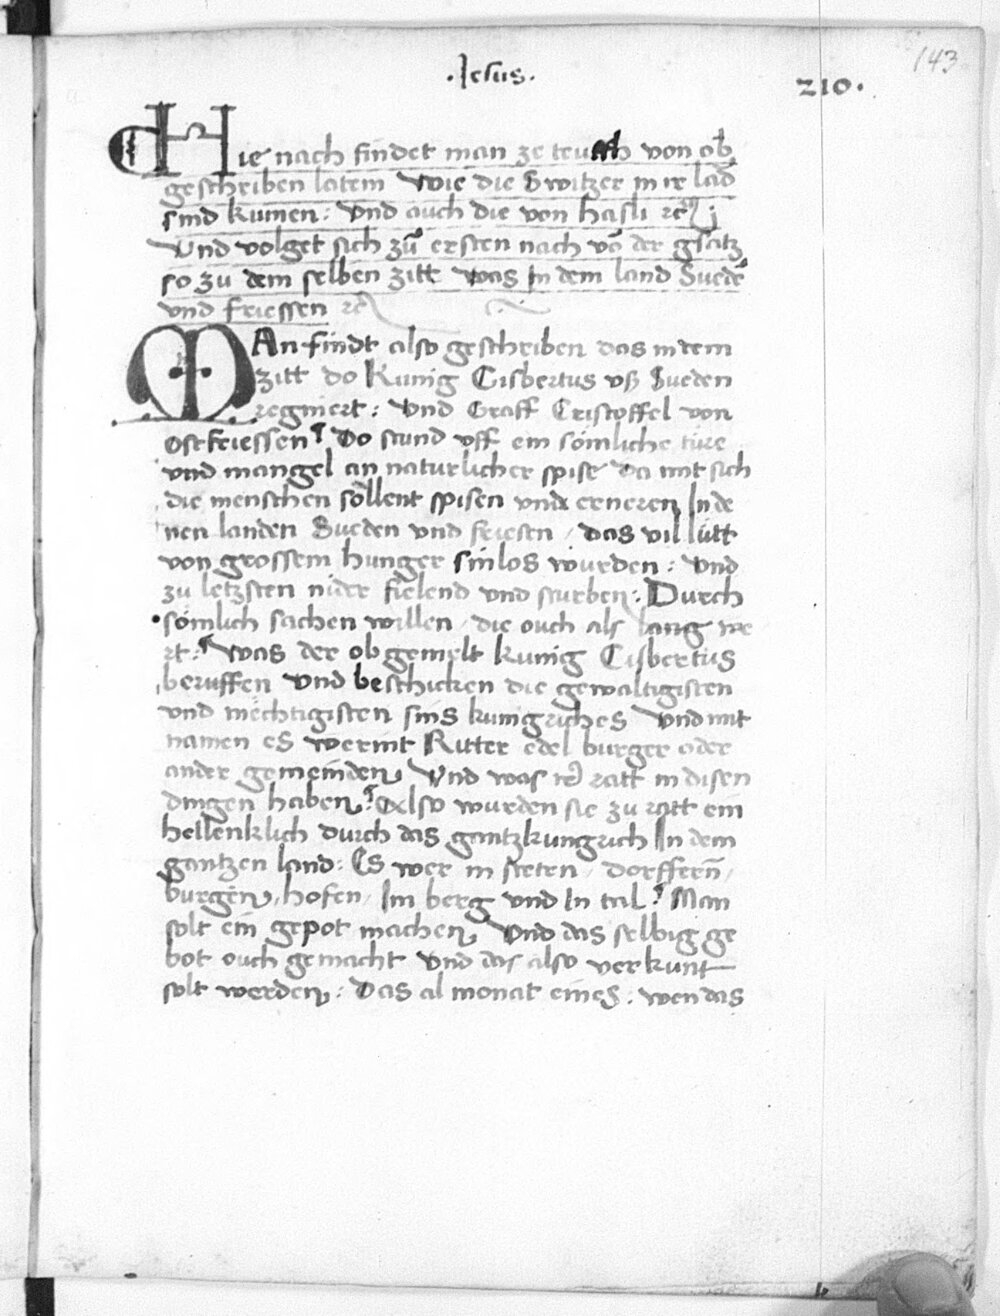 143
.Jesus.
210.
Hie nach findet man ze teutsch von ob
geschriben latein Wie die Switzer in ir lād
sind kumen: Vnd auch die von hasli ꝛc̃
Vnd volget sich zů ersten nach vō der gsatz
so zu dem selben zitt was In dem land Suedē
vnd friessen ꝛc̃
MAn findt also geschriben das in dem
zitt do Kunig Cisbertus vß Sueden
regniert: Vnd Graff Cristoffel von
ostfriessen Do stund vff ein sömliche türe
vnd mangel an naturlicher spise da mit sich
die menschen söllent spisen vnd erneren In de
nen landen Sueden vnd friesen / das vil lütt
von grossem hunger sinlos wurden: Vnd
zu letzsten nider fielend vnd sturben: Durch
sömlich sachen willen / die ouch als lang we
rt: Was der obgemelt kunig Cisbertus
beruffen Vnd beschicken die gewaltigisten
vnd mechtigisten sins kunigriches Vnd mit
namen es werint Ritter edel burger oder
ander gemeinden Vnd was ir ratt in disen
dingen haben Also wurden sie zu ratt ein
hellenklich durch das gantz kungrich In dem
gantzen land: Es wer in steten / dorffern̄ /
burgen, hofen / Im berg vnd In tal Man
solt ein gepot machen Vnd das selbig ge
bot ouch gemacht Vnd das also verkunt
solt werden: Das al monat eines: wen das